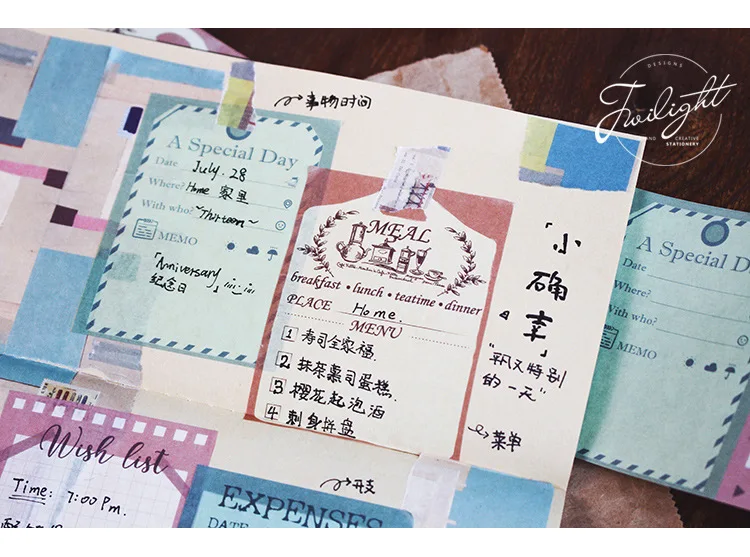 DESIGNS
Twilight
AND CREATIVE
STATIONERY
事物时间
A Special Day
Date July. 28
Where? Home 家里
With who? ~Thirteen~
MEMO
「Anniversary
纪念日」
MEAL
breakfast • lunch • teatime • dinner
PLACE Home
MENU
1 寿司全家福
2 抹茶慕司蛋糕.
3 樱花起泡酒
4 刺身拼盘
「小
确
幸」
"平凡又特别
的一天"
菜单
A Special Day
Date
Where?
With who?
MEMO
Wish list
Time: 7:00 Pm.
开支
EXPENSES
DATE